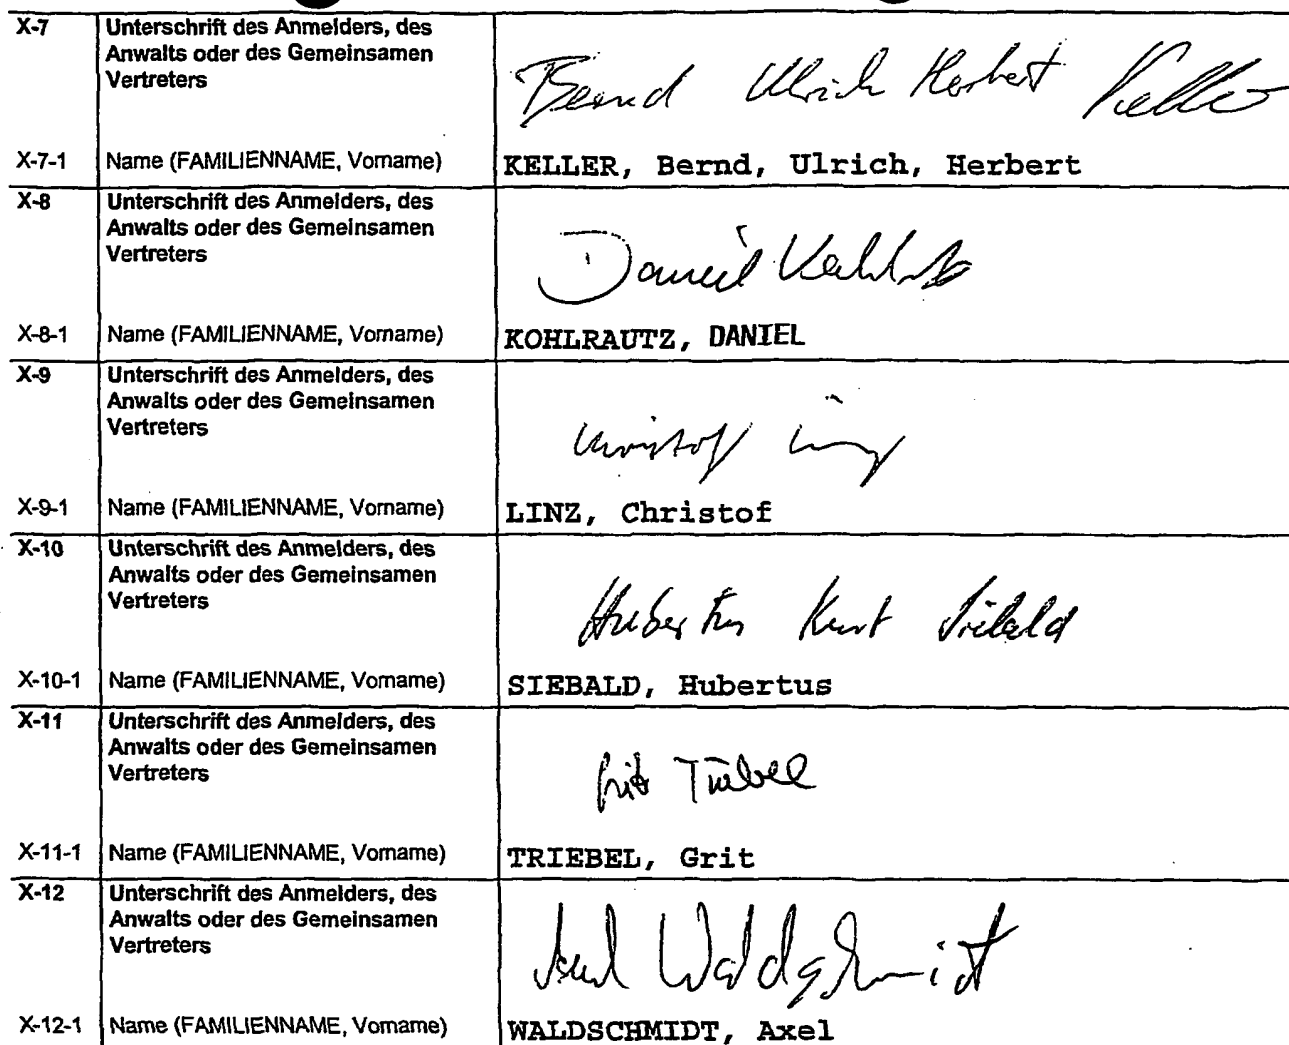 X-7 Unterschrift des Anmelders, des
Anwalts oder des Gemeinsamen
Vertreters
Bernd Ulrich Herbert Keller
X-7-1 Name (FAMILIENNAME, Vorname) KELLER, Bernd, Ulrich, Herbert
X-8 Unterschrift des Anmelders, des
Anwalts oder des Gemeinsamen
Vertreters
Daniel
X-8-1 Name (FAMILIENNAME, Vorname) KOHLRAUTZ, DANIEL
X-9 Unterschrift des Anmelders, des
Anwalts oder des Gemeinsamen
Vertreters
Christof
X-9-1 Name (FAMILIENNAME, Vorname) LINZ, Christof
X-10 Unterschrift des Anmelders, des
Anwalts oder des Gemeinsamen
Vertreters
Hubertus Kurt Siebald
X-10-1 Name (FAMILIENNAME, Vorname) SIEBALD, Hubertus
X-11 Unterschrift des Anmelders, des
Anwalts oder des Gemeinsamen
Vertreters
Grit Triebel
X-11-1 Name (FAMILIENNAME, Vorname) TRIEBEL, Grit
X-12 Unterschrift des Anmelders, des
Anwalts oder des Gemeinsamen
Vertreters
Axel Waldschmidt
X-12-1 Name (FAMILIENNAME, Vorname) WALDSCHMIDT, Axel